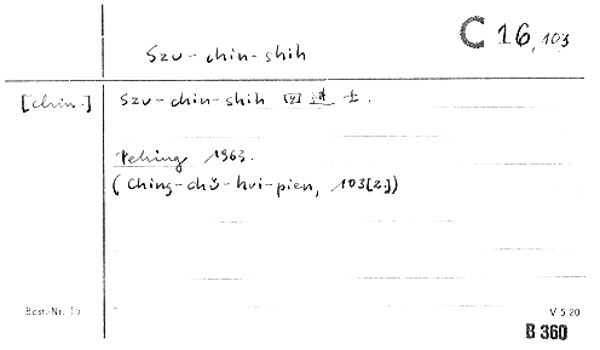 C 16,103
Szu-chin-shih
[chin.] Szu-chin-shih 四进士.
Peking 1963.
(Ching-chü-hui-pien, 103[2.])
Best.-Nr. 15
V 5 20
B 360